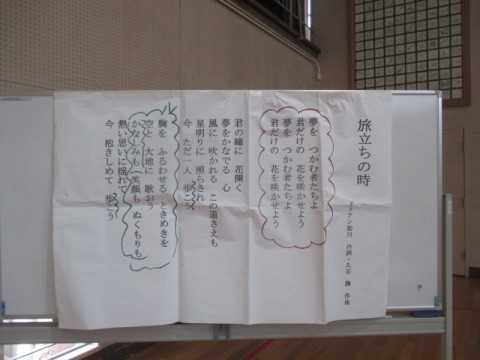 旅立ちの時
ドリアン助川 作詞・久石 譲 作曲
夢を つかむ者たちよ
君だけの 花を咲かせよう
夢を つかむ者たちよ
君だけの 花を咲かせよう
君の瞳に 花開く
夢をかなでる 心
風に 吹かれる この道さえも
星明りに 照らされ
今 ただ一人 歩こう
胸を ふるわせる ときめきを
空と 大地に 歌おう
かなしみも 笑顔も ぬくもりも
熱い思いに揺れて
今 抱きしめて 歩こう